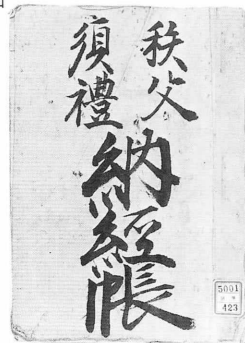 秩父
須禮
納経帳
5001
423